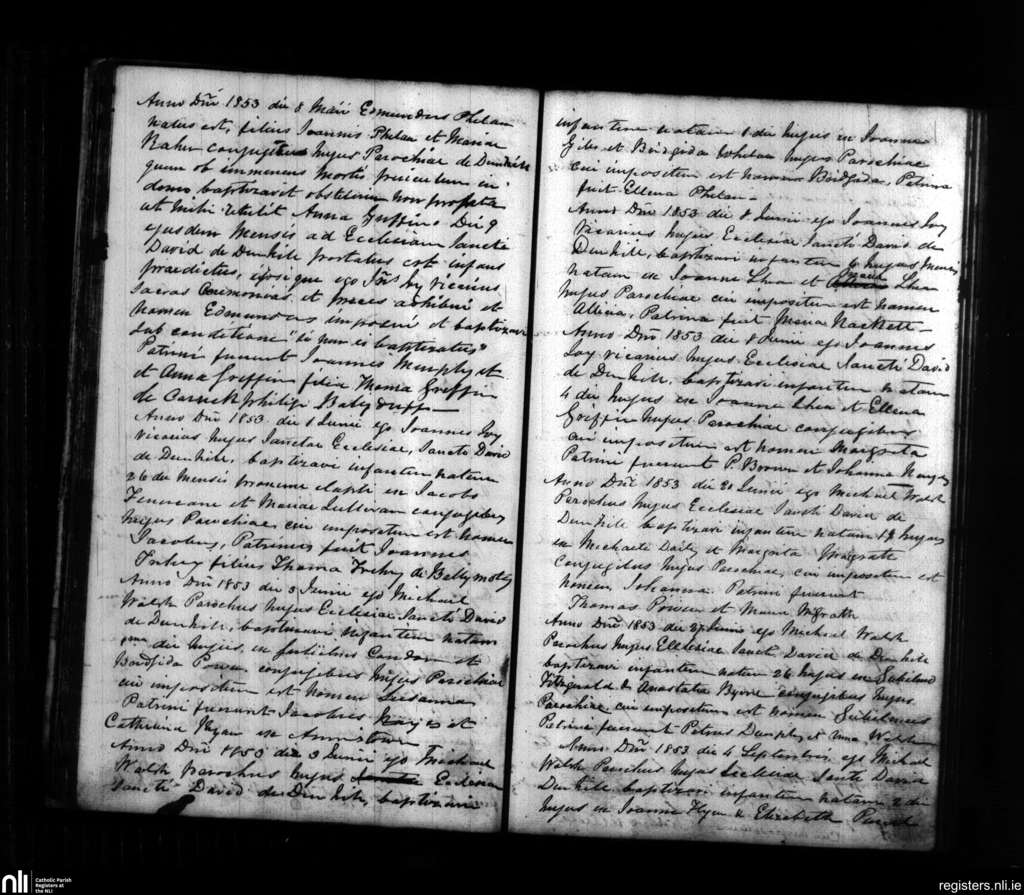 Anno Dñi 1853 die 8 Maii Edmundus Phelan
natus est, filius Joannis Phelan et Mariae
Kahn conjugibus hujus Parochiae de Dunhill
quem ob immenens mortis periculum in
domo baptizavit obstetrix non prof
ut mihi retulit Anna Griffin. Die 9
ejusdem Mensis ad Ecclesiam Sancti
David de Dunhill portatus est infans
praedictus, eique ego Jñs Ivy vicarius
sacras Ceremonias et preces adhibui et
nomen Edmundus imposui et baptizavi
sub conditione "si non es baptizatus"
Patrini fuerunt Joannes Murphy et
et Anna Griffin filia Thoma Griffin
de Carrickphilip Ballyduff
Anno Dñi 1853 die 1 Junii ego Joannes Ivy
vicarius hujus Sanctae Ecclesiae, Sancti David
de Dunhill, baptizavi infantem natum
26 die Mensis elapsi ex Jacobo
et Mariae Sullivan conjugibus
hujus Parochiae cui impositum est nomen
Jacobus, Patrinus fuit Joannes
filius Thoma de Ballymotty
Anno Dñi 1853 die 3 Junii ego Michael
Walsh Parochus hujus Ecclesiae Sancti David
de Dunhill, baptizavi infantem natam
die hujus, ex Condon et
Bridgida Power conjugibus hujus Parochiae
cui impositum est nomen Susanna
Patrini fuerunt Jacobus et
Catherina Ryan ex Annestown
Anno Dñi 1853 die 3 Junii ego Michael
Walsh parochus hujus Ecclesiae
Sancti David de Dunhill, baptizavi
infantem natam 1 die hujus ex Joanne
et Bridgida Whelan hujus Parochiae
cui impositum est nomen Bridgida, Patrina
fuit Ellena Phelan
Anno Dñi 1853 die 8 Junii ego Joannes Ivy
Vicarius hujus Ecclesiae Sancti David de
Dunhill, baptizavi infantem 6 hujus Mensis
natam ex Joanne Shea et Shea
hujus Parochiae cui impositum est nomen
Allicia, Patrina fuit Maria Hackett
Anno Dñi 1853 die 8 Junii ego Joannes
Ivy vicarius hujus Ecclesiae Sancti David
de Dunhill, baptizavi infantem natam
4 die hujus ex Joanne Shea et Ellena
Griffin hujus Parochiae conjugibus
cui impositum est nomen Margarita
Patrini fuerunt P. Brown et Johanna
Anno Dñi 1853 die 20 Junii ego Michael Walsh
Parochus hujus Ecclesiae Sancti David de
Dunhill baptizavi infantem natam 19 hujus
ex Michaele Daily et Margarita Magrath
conjugibus hujus Parochiae, cui impositum est
nomen Johanna. Patrini fuerunt
Thomas Power et Maria McGrath
Anno Dñi 1853 die 27 Junii ego Michael Walsh
Parochus hujus Ecclesiae Sancti David de Dunhill
baptizavi infantem natum 26 hujus ex Gulielmo
Fitzgerald & Anastatia Byrne conjugibus hujus
Parochiae cui impositum est nomen Gulielmus
Patrini fuerunt Petrus Dunphy et Walsh
Anno Dñi 1853 die 4 Septembris, ego Michael
Walsh Parochus hujus Ecclesiae Sancti David
Dunhill baptizavi infantem natam 2 die
hujus ex Joanne Flynn & Elizabeth
nli Catholic Parish
Registers at
the NLI
registers.nli.ie